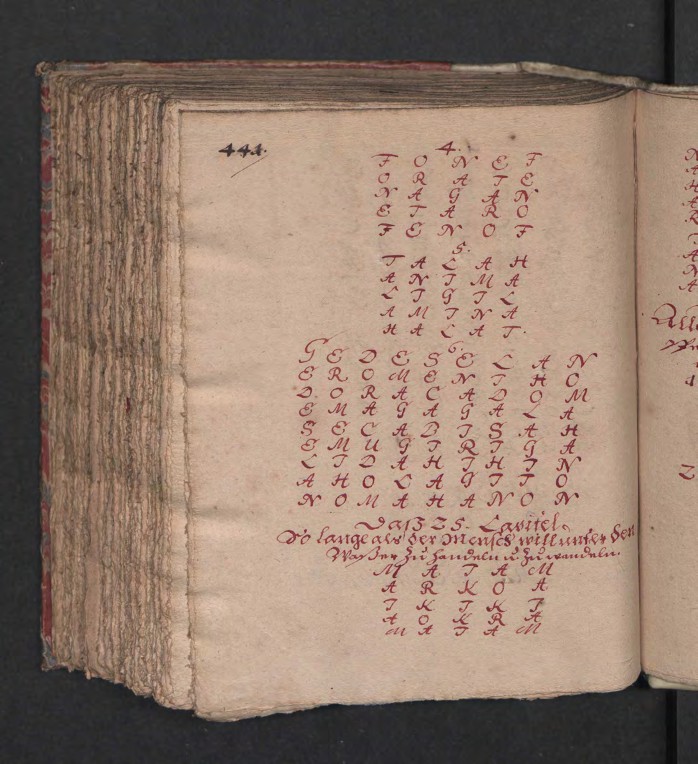 441.
4.
F O N E F
O R A T E
N A G A N
E T A R O
F E N O F
5.
T A L A H
A N I M A
L I G I L
A M I N A
H A L A T.
6.
G E D E S E L A N
E R O M E N I H O
D O R A C A D O M
E M A G A G A L A
S E C A D I S A H
E M U G I R I G A
L I D A H I H I N
A H O L A G I I O
N O M A H A N O N
Daß 25. Capitel.
So lange als der Mensch will unter den
Waßer zu handeln u. zu wandeln.
M A I A M
A R K O A
I K I K I
A O K R A
M A I A M